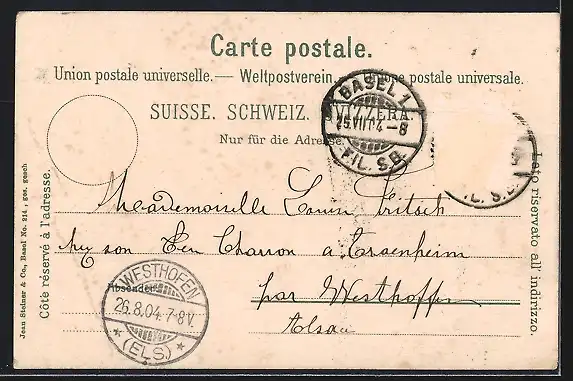 Carte postale.
Union postale universelle. — Weltpostverein. — Unione postale universale.
SUISSE. SCHWEIZ. SVIZZERA.
Nur für die Adresse.
BASEL 1
25.VIII.04.-8
FIL. S.B.
FIL. S.B.
Côté réservé à l'adresse.
Jean Steiner & Co., Basel No. 214, ges. gesch
Lato riservato all' indirizzo.
Mademoiselle Louise Fritsch
Charron a Traenheim
par Westhoffen
Alsace
Absender:
WESTHOFEN
26.8.04.7-8V.
* (ELS) *